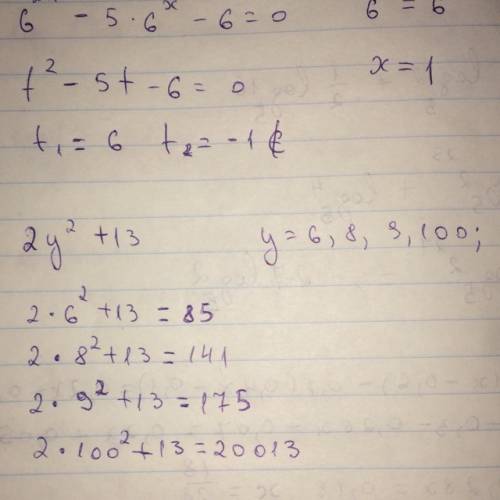 6 - 5·6^x - 6 = 0    6 = 6
t² - 5t - 6 = 0    x = 1
t₁ = 6  t₂ = -1 ∉
2y² + 13    y = 6, 8, 9, 100;
2·6² + 13 = 85
2·8² + 13 = 141
2·9² + 13 = 175
2·100² + 13 = 20013